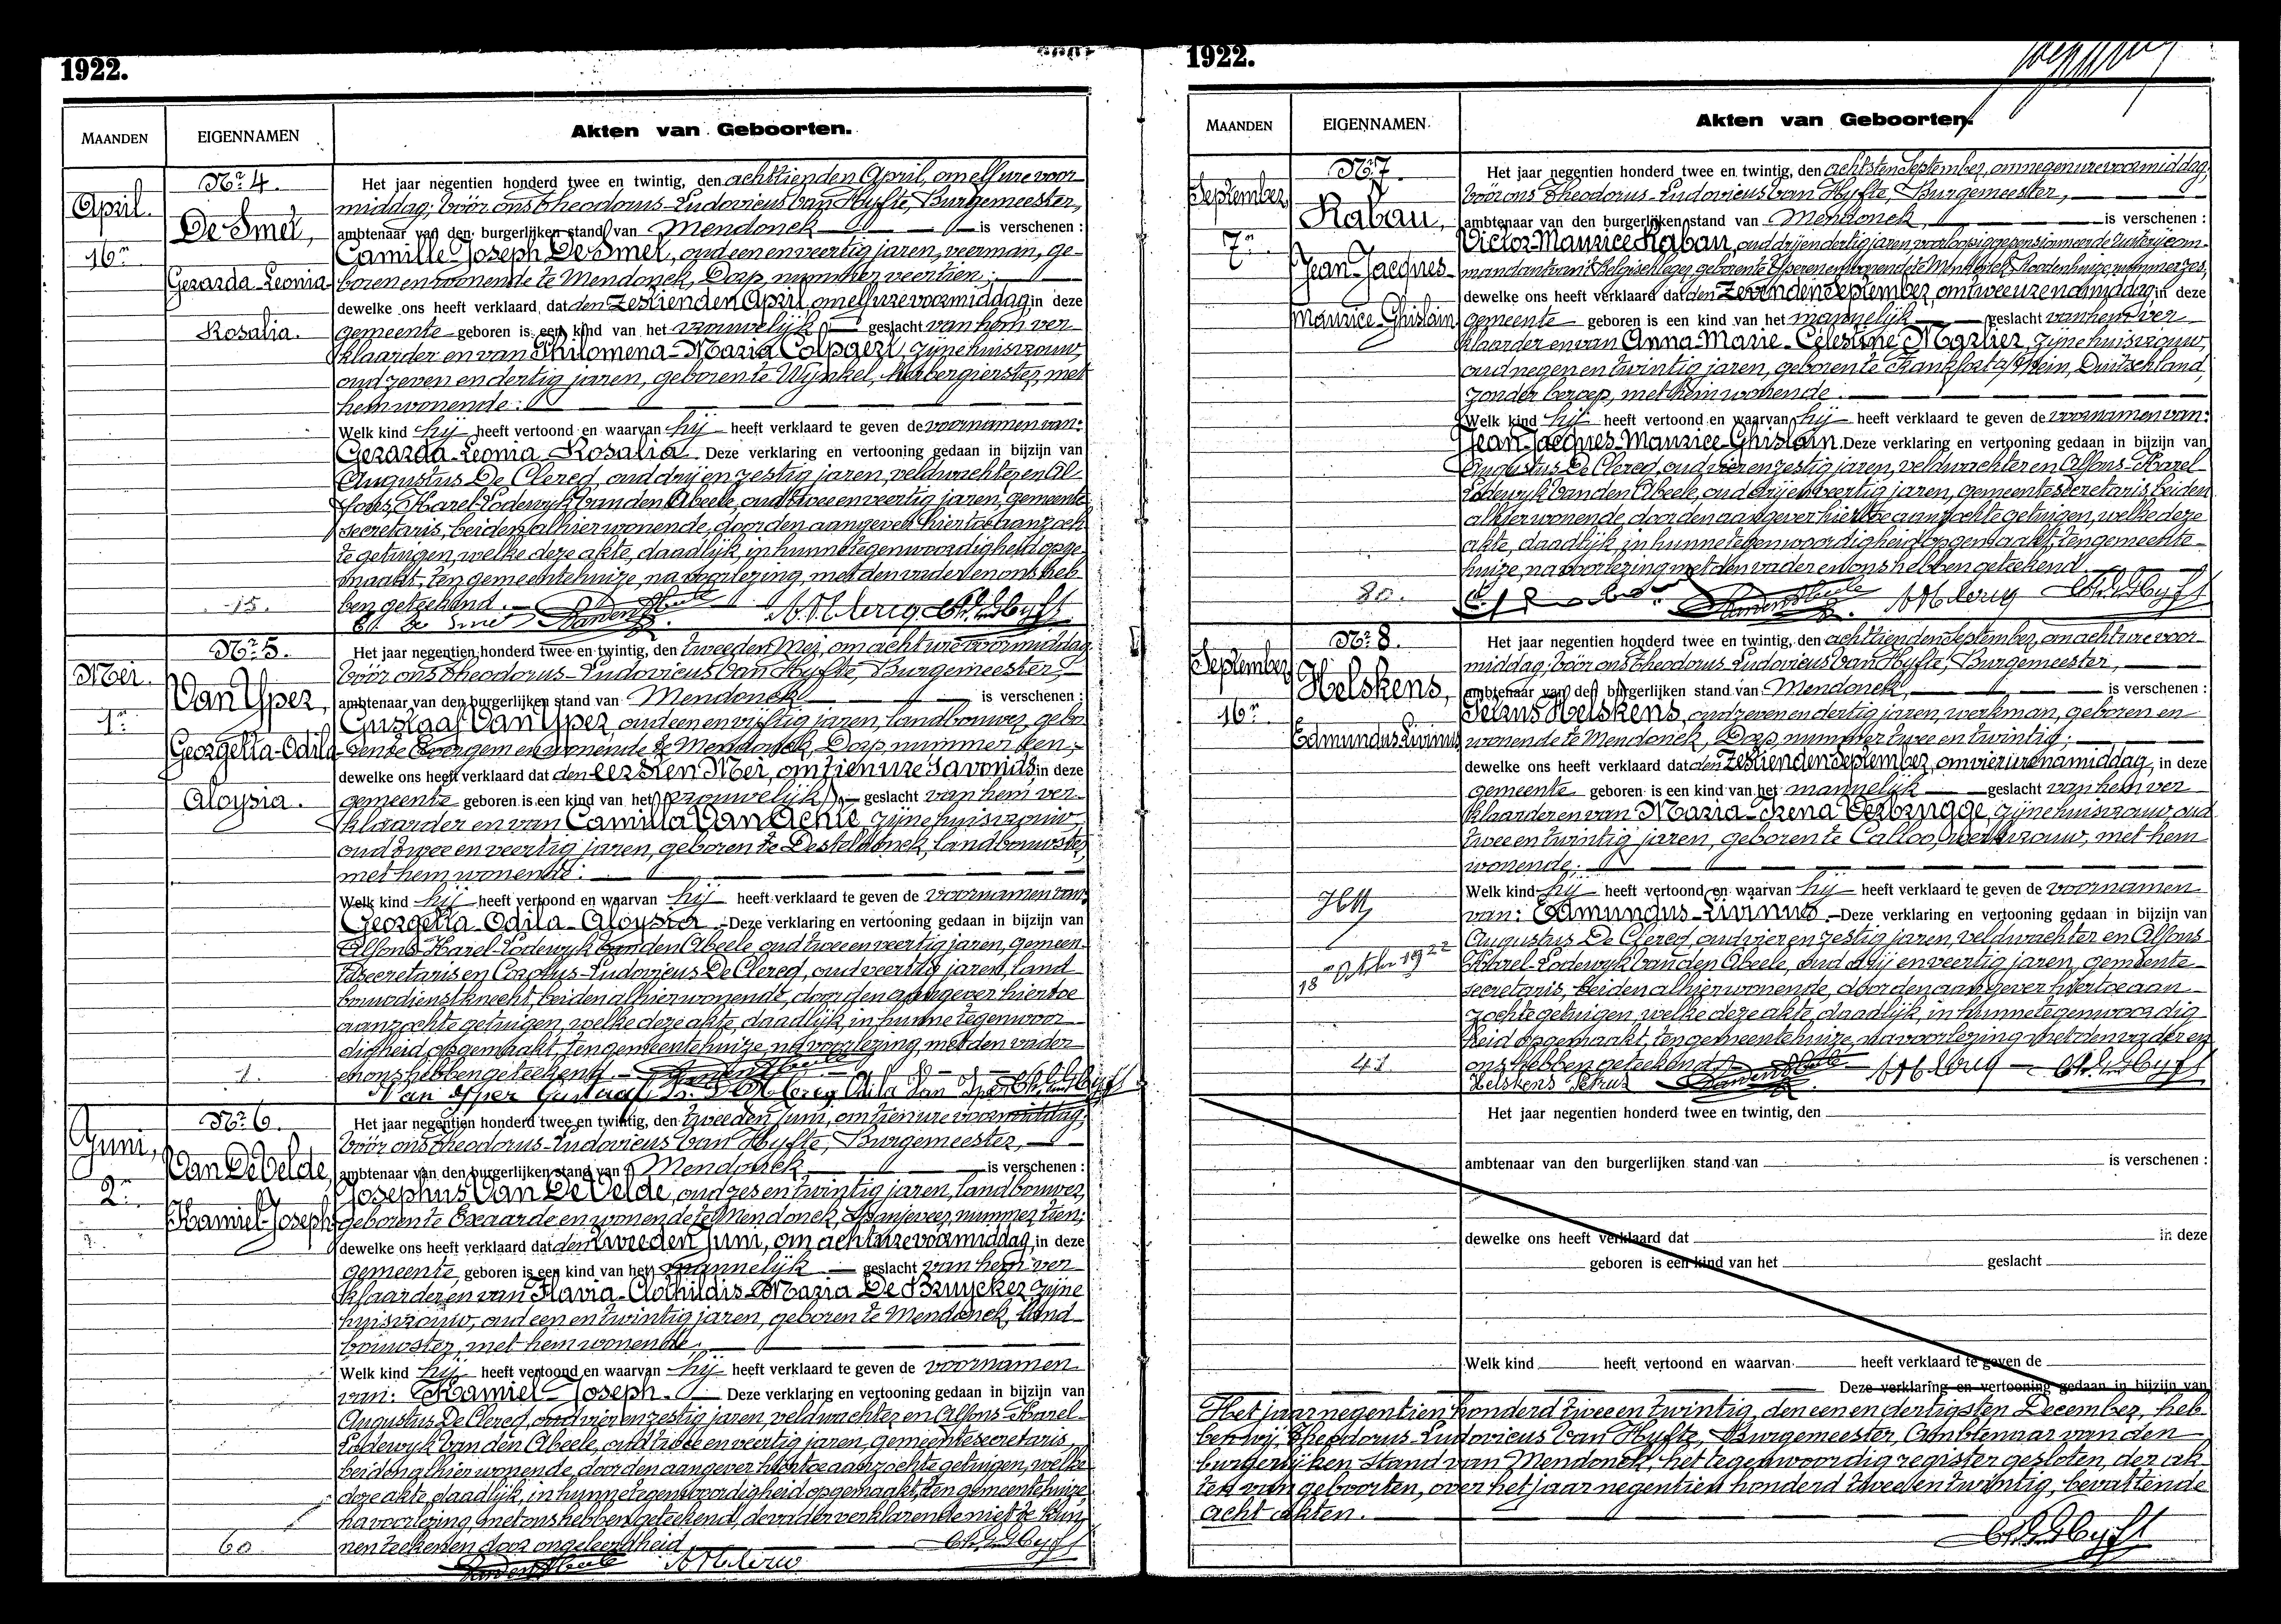 1922.
MAANDEN
EIGENNAMEN
Akten van Geboorten.
April.
16n
Nr. 4.
De Smet,
Gerarda-Leonia-
Rosalia.
15.
Het jaar negentien honderd twee en twintig, den achttienden April, om elf ure voor
middag; vóór ons Theodorus-Ludovicus Van Hyfte, Burgemeester,
ambtenaar van den burgerlijken stand van Mendonck is verschenen :
Camille Joseph De Smet, oud een en veertig jaren, veerman, ge-
boren en wonende te Mendonck, Dorp nummer veertien;
dewelke ons heeft verklaard, dat den zestienden April, om elf ure voormiddag, in deze
gemeente geboren is een kind van het vrouwelijk geslacht van hem ver-
klaarder en van Philomena-Maria Colpaert, zijne huisvrouw,
oud zeven en dertig jaren, geboren te Wynkel, herbergierster, met
hem wonende:
Welk kind hij heeft vertoond en waarvan hij heeft verklaard te geven de voornamen van:
Gerarda-Leonia-Rosalia. Deze verklaring en vertooning gedaan in bijzijn van
Augustus De Clercq, oud drij en zestig jaren, veldwachter en Al-
fons-Karel-Lodewyk Van den Abeele, oud twee en veertig jaren, gemeente-
secretaris, beiden alhier wonende, door den aangever hiertoe aanzoch-
te getuigen, welke deze akte, daadlijk, in hunne tegenwoordigheid opge-
maakt, ten gemeentehuize, na voorlezing, met den vader en ons heb-
ben geteekend.
Mei.
1n
Nr. 5.
Van Yper,
Georgetta-Odila-
Aloysia.
1.
Het jaar negentien honderd twee en twintig, den tweeden Mei, om acht ure voormiddag
vóór ons Theodorus-Ludovicus Van Hyfte, Burgemeester,
ambtenaar van den burgerlijken stand van Mendonck is verschenen :
Gustaaf Van Yper, oud een en vijftig jaren, landbouwer, gebo-
ren te Evergem en wonende te Mendonck, Dorp nummer een;
dewelke ons heeft verklaard dat den eersten Mei, om tien ure s'avonds, in deze
gemeente geboren is een kind van het vrouwelijk geslacht van hem ver-
klaarder en van Camilla Van Achte, zijne huisvrouw,
oud twee en veertig jaren, geboren te Desteldonck, landbouwster,
met hem wonende:
Welk kind hij heeft vertoond en waarvan hij heeft verklaard te geven de voornamen van:
Georgetta-Odila-Aloysia. Deze verklaring en vertooning gedaan in bijzijn van
Alfons-Karel-Lodewyk Van den Abeele oud twee en veertig jaren, gemeen-
tesecretaris en Carolus-Ludovicus De Clercq, oud veertig jaren, land-
bouwdienstknecht, beiden alhier wonende, door den aangever hiertoe
aanzochte getuigen, welke deze akte, daadlijk, in hunne tegenwoor-
digheid opgemaakt, ten gemeentehuize, na voorlezing, met den vader
en ons hebben geteekend.
Van Yper Gustaaf
Juni,
2n
Nr. 6.
Van De Velde,
Kamiel-Joseph.
60
Het jaar negentien honderd twee en twintig, den tweeden Juni, om tien ure voormiddag;
vóór ons Theodorus-Ludovicus Van Hyfte, Burgemeester,
ambtenaar van den burgerlijken stand van Mendonck is verschenen :
Josephus Van De Velde, oud zes en twintig jaren, landbouwer,
geboren te Exaarde en wonende te Mendonck, Spanjeveer, nummer tien;
dewelke ons heeft verklaard dat den tweeden Juni, om acht ure voormiddag, in deze
gemeente, geboren is een kind van het mannelijk geslacht van hem ver-
klaarder en van Flavia-Clothildis-Maria De Bruycker zijne
huisvrouw, oud een en twintig jaren, geboren te Mendonck, land-
bouwster, met hem wonende.
Welk kind hij heeft vertoond en waarvan hij heeft verklaard te geven de voornamen
van: Kamiel-Joseph. Deze verklaring en vertooning gedaan in bijzijn van
Augustus De Clercq, oud vier en zestig jaren, veldwachter en Alfons-Karel-
Lodewyk Van den Abeele, oud twee en veertig jaren, gemeentesecretaris
beiden alhier wonende, door den aangever hiertoe aanzochte getuigen, welke
deze akte, daadlijk, in hunne tegenwoordigheid opgemaakt, ten gemeentehuize,
na voorlezing, met ons hebben geteekend, de vader verklarende niet te kun-
nen teekenen door ongeleerdheid.
1922.
MAANDEN
EIGENNAMEN.
Akten van Geboorten.
September
7n
Nr. 7.
Rabau,
Jean-Jacques-
Maurice-Ghislain.
80.
Het jaar negentien honderd twee en twintig, den achtsten September, om negen ure voormiddag,
vóór ons Theodorus-Ludovicus Van Hyfte, Burgemeester,
ambtenaar van den burgerlijken stand van Mendonck, is verschenen :
Victor-Maurice Rabau, oud drij en dertig jaren, voorloopig gepensionneerde Batterijcom-
mandant van 't Belgisch leger, geboren te Yperen en wonende te Mendonck, Roodenhuize, nummer zes,
dewelke ons heeft verklaard dat den zevenden September, om twee ure namiddag, in deze
gemeente geboren is een kind van het mannelijk geslacht van hem ver-
klaarder en van Anna-Marie-Célestine Marlier, zijne huisvrouw,
oud negen en twintig jaren, geboren te Frankfort a/Rhein, Duitschland,
zonder beroep, met hem wonende.
Welk kind hij heeft vertoond en waarvan hij heeft verklaard te geven de voornamen van:
Jean-Jacques-Maurice-Ghislain. Deze verklaring en vertooning gedaan in bijzijn van
Augustus De Clercq, oud vier en zestig jaren, veldwachter en Alfons-Karel-
Lodewyk Van den Abeele, oud drij en veertig jaren, gemeentesecretaris, beiden
alhier wonende, door den aangever hiertoe aanzochte getuigen, welke deze
akte, daadlijk, in hunne tegenwoordigheid opgemaakt, ten gemeente-
huize, na voorlezing met den vader en ons hebben geteekend.
September
16n
Nr. 8.
Helskens,
Edmundus-Livinus
18n October 1922
41
Het jaar negentien honderd twee en twintig, den achttienden September, om acht ure voor-
middag; vóór ons Theodorus-Ludovicus Van Hyfte, Burgemeester,
ambtenaar van den burgerlijken stand van Mendonck, is verschenen :
Petrus Helskens, oud zeven en dertig jaren, werkman, geboren en
wonende te Mendonck, Dorp, nummer twee en twintig;
dewelke ons heeft verklaard dat den zestienden September, om vier ure namiddag, in deze
gemeente geboren is een kind van het mannelijk geslacht van hem ver-
klaarder en van Maria-Irena Verbrugge, zijne huisvrouw oud
twee en twintig jaren, geboren te Calloo, werkvrouw, met hem
wonende;
Welk kind hij heeft vertoond en waarvan hij heeft verklaard te geven de voornamen
van: Edmundus-Livinus. Deze verklaring en vertooning gedaan in bijzijn van
Augustus De Clercq, oud vier en zestig jaren, veldwachter en Alfons-
Karel-Lodewyk Van den Abeele, oud drij en veertig jaren, gemeente-
secretaris, beiden alhier wonende, door den aangever hiertoe aan-
zochte getuigen, welke deze akte, daadlijk, in hunne tegenwoordig-
heid opgemaakt, ten gemeentehuize, na voorlezing met den vader en
ons hebben geteekend.
Helskens Petrus
Het jaar negentien honderd twee en twintig, den
ambtenaar van den burgerlijken stand van is verschenen :
dewelke ons heeft verklaard dat in deze
geboren is een kind van het geslacht
Welk kind heeft vertoond en waarvan heeft verklaard te geven de
Deze verklaring en vertooning gedaan in bijzijn van
Het jaar negentien honderd twee en twintig, den een en dertigsten December, heb-
ben wij Theodorus-Ludovicus Van Hyfte, Burgemeester, Ambtenaar van den
burgerlijken stand van Mendonck, het tegenwoordig register gesloten, der ak-
ten van geboorten, over het jaar negentien honderd twee en twintig, bevattende
acht akten.